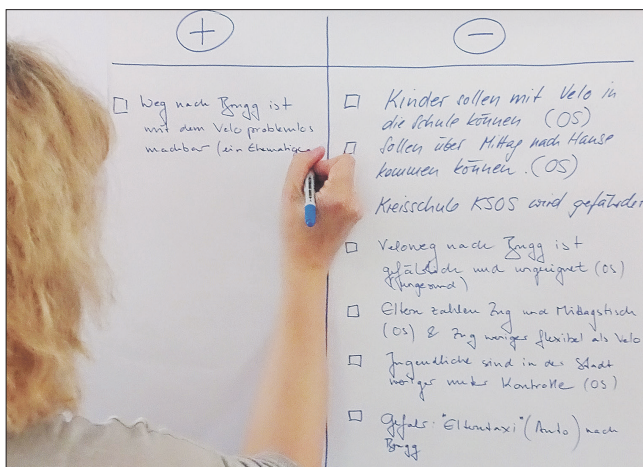 +
Weg nach Brugg ist
mit dem Velo problemlos
machbar (ein Ehemaliger
−
Kinder sollen mit Velo in
die Schule können (OS)
sollen über Mittag nach Hause
kommen können. (OS)
Kreisschule KSOS wird gefährdet
Veloweg nach Brugg ist
gefährlich und ungeeignet (OS)
(ungesund)
Eltern zahlen Zug und Mittagstisch
(OS) & Zug weniger flexibel als Velo
Jugendliche sind in der Stadt
weniger unter Kontrolle (OS)
Gefahr: "Elterntaxi" (Auto) nach
Brugg